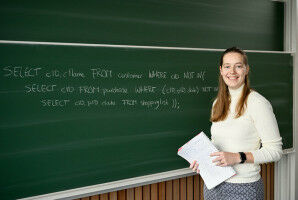 SELECT cID, cName FROM customer WHERE cID NOT IN(
SELECT cID FROM purchase WHERE (cID, pID, date) NOT
SELECT cID, pID, date FROM shoppinglist ));